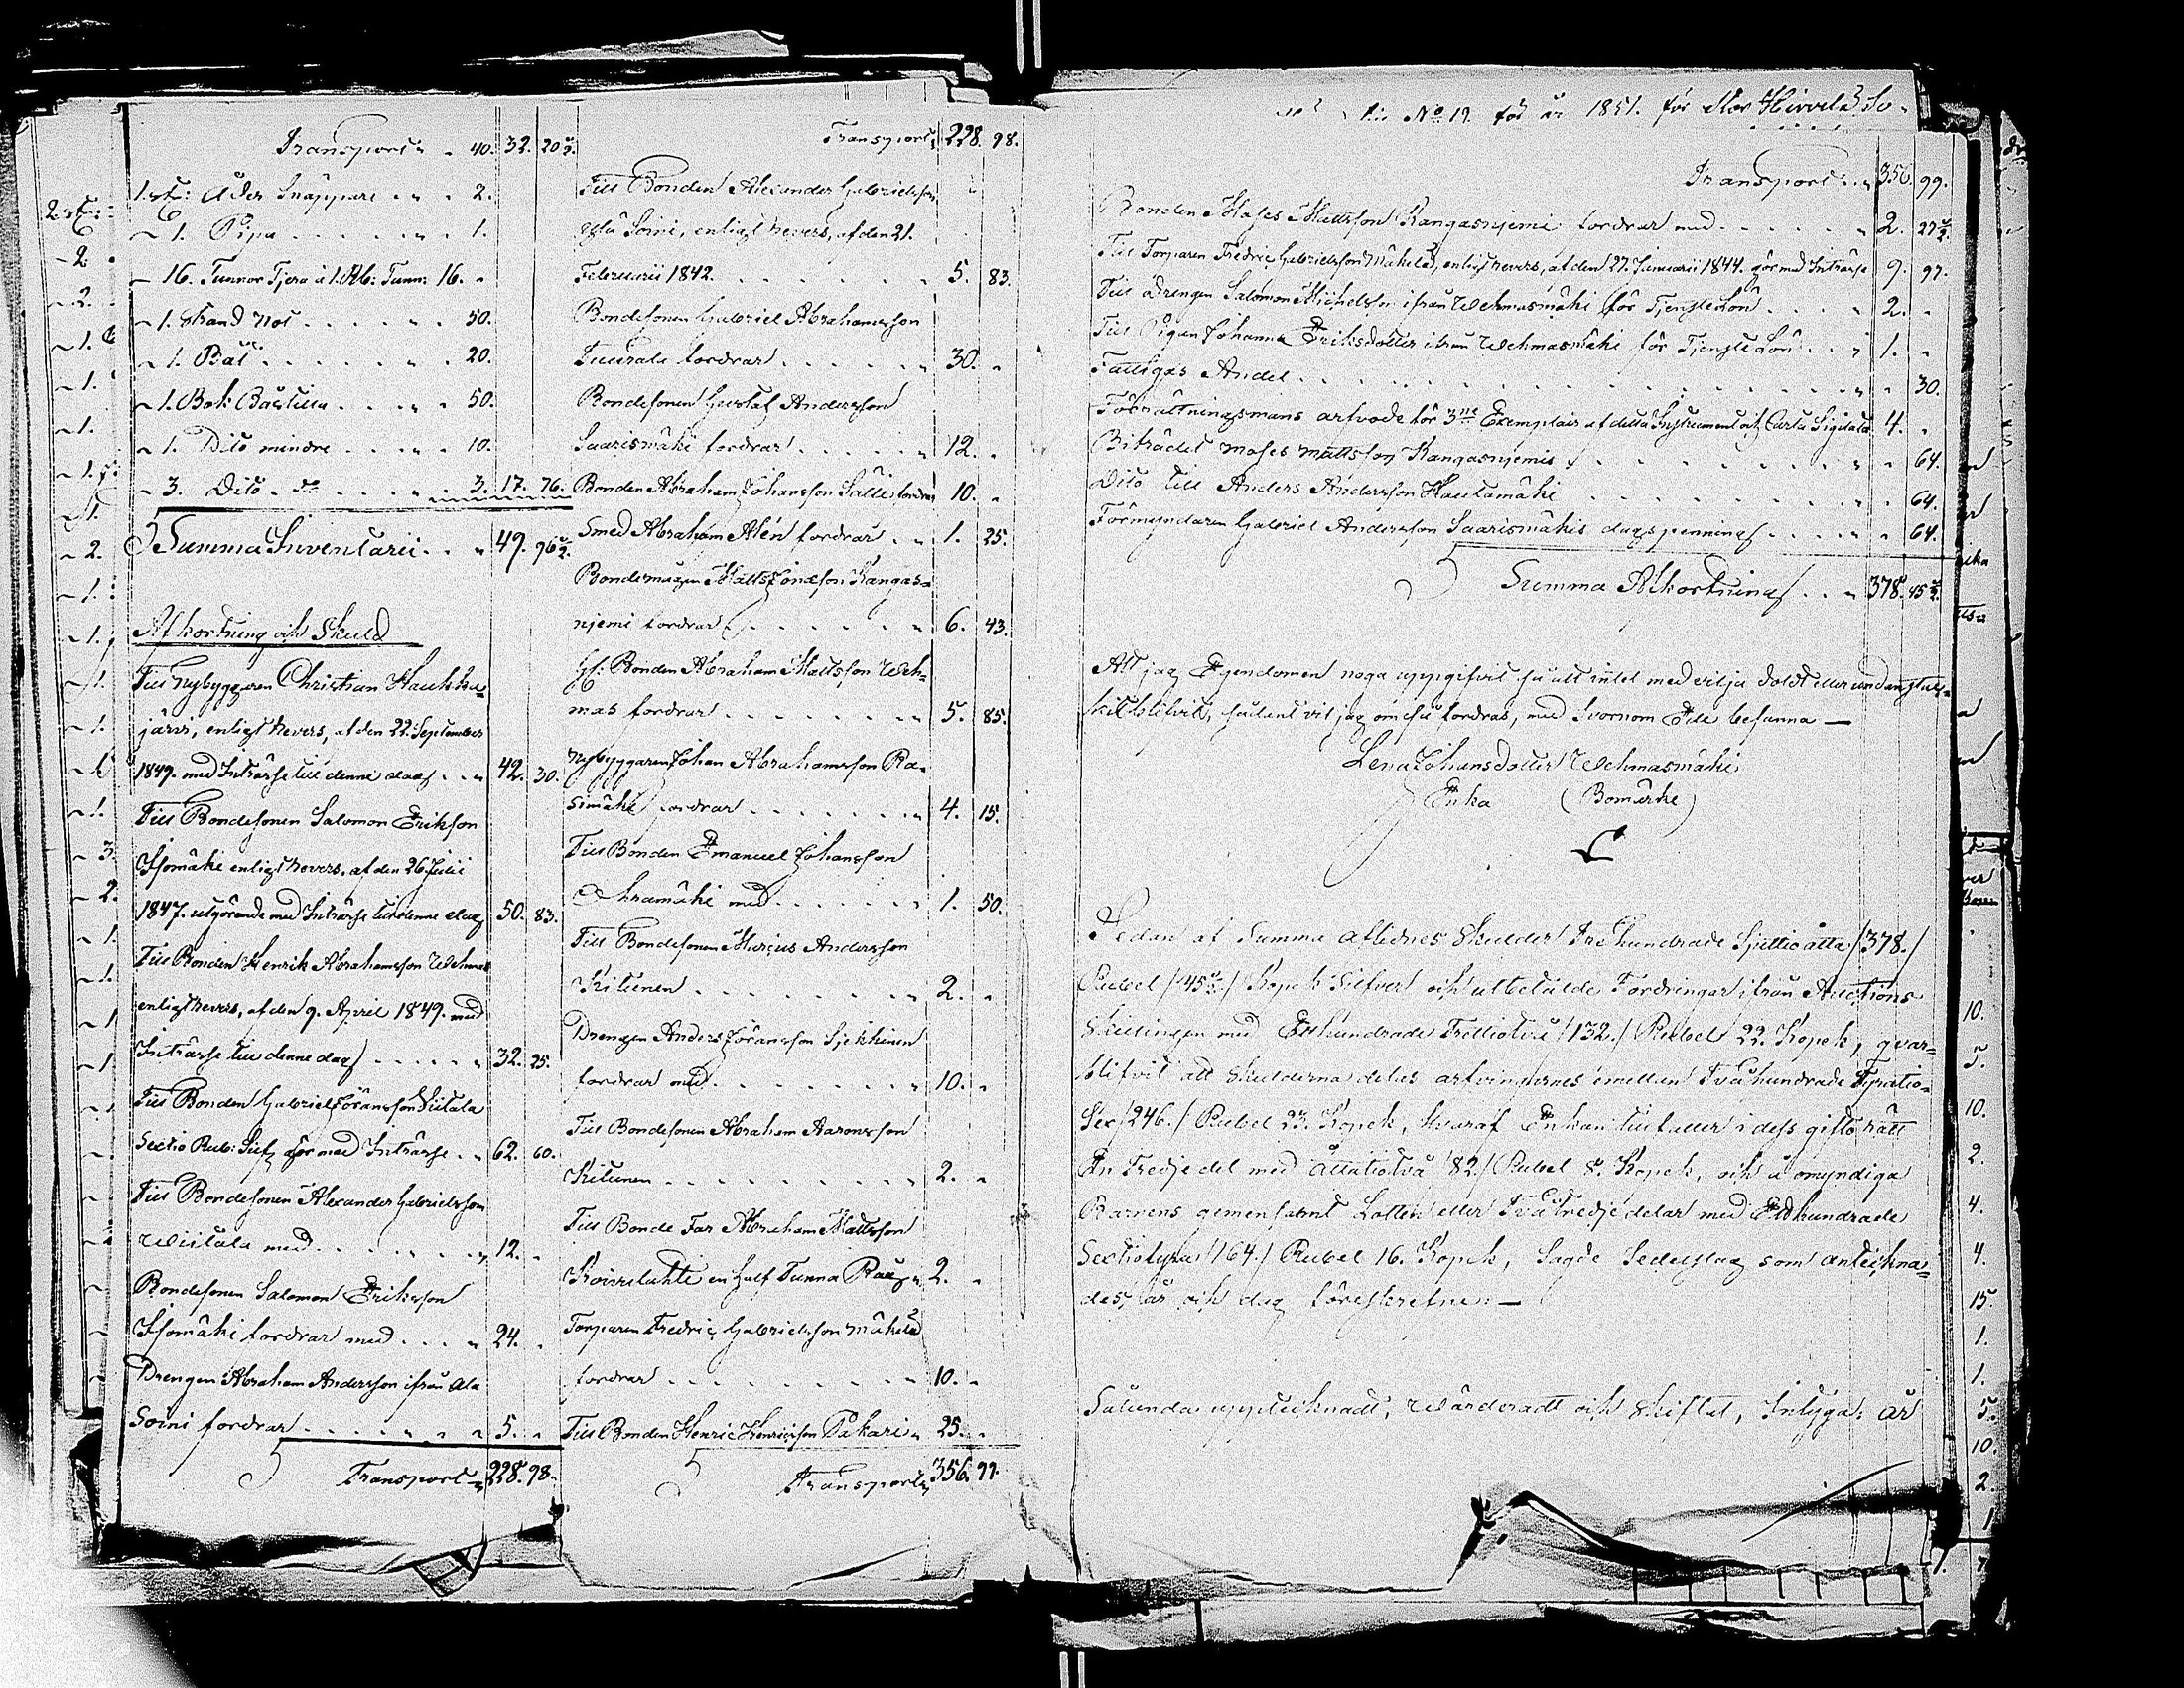 Transport „ 40. 32. 20½.
1. st: Åder Snäppare „ „ 2.
„ 1. Pipa . . . . „ „ 1.
„ 16. Tunnor Tjera à 1. Rub: Tunn: 16. „
„ 1. Strand Not . . . . . „ 50.
„ 1. Båt . . . . . . „ 20.
„ 1. Bok . . . . „ 50.
„ 1. Dito mindre . . . „ 10.
„ 3. Dito . do . . . . „ 3. 17. 76.
Summa Inventarii . . „ 49. 96½.
Afkortning och Skuld
Till Nybyggaren Christian Haukka-
järvi, enligt Revers, af den 22. September
1849. med Inträsse till denne dag . . „ 42. 30.
Till Bondesonen Salomon Erikson
Isomäki enligt Revers, af den 26 Julii
1847. utgörande med Inträsse till denne dag 50. 83.
Till Bonden Henrik Abrahamsson Wehmas
enligt Revers, af den 9. April 1849. med
Inträsse till denne dag . . . . . „ 32. 25.
Till Bonden Gabriel Jöransson Viitala
Sextio Rub: Silf, gör med Inträsse . . „ 62. 60.
Till Bondesonen Alexander Gabrielsson
Wiitala med . . . . . . . „ 12. „
Bondesonen Salomon Eriksson
Isomäki fordrar med . . . „ 24. „
Drengen Abraham Andersson ifrån Ala
Soini fordrar . . . . . . „ „ 5. „
Transport „ 228. 98.
Transport „ 228. 98.
Till Bonden Alexander Gabrielsson
Soini, enligt Revers, af den 21.
Februarii 1842. . . . . . . . „ 5. 83.
Bondesonen Gabriel Abrahamsson
fordrar . . . . . . „ 30. „
Bondesonen Gustaf Andersson
Saarismäki fordrar . . . . . „ 12. „
Bonden Abraham Johansson fordrar 10. „
Smed Abraham Alén fordrar . . „ 1. 25.
Bondemågen Matts Jonasson Kangas-
njemi fordrar . . . . . . „ 6. 43.
Gl: Bonden Abraham Mattsson Weh-
mas fordrar . . . . . . . . „ 5. 85.
Nybyggaren Johan Abrahamsson Ra-
simäki fordrar . . . . . . . „ 4. 15.
Till Bonden Emanuel Johansson
Ahramäki med . . . . . . „ 1. 50.
Till Bondesonen Marcus Andersson
Kitunen . . . . . . . . . „ 2. „
Drengen Anders Jöransson
fordrar med . . . . . . . „ 10. „
Till Bondesonen Abraham Aaronsson
Kitunen . . . . . . . . . „ 2. „
Till Bonde Far Abraham Mattsson
Koivulahti en half Tunna Råg „ 2. „
Torparen Fredric Gabrielsson Mäkelä
fordrar . . . . . . . . . . „ 10. „
Till Bonden Henric Henricsson Pakari „ 25. „
Transport „ 356. 99.
No 19. för år 1851. för Hirvelä
Transport „ „ 356. 99.
Bonden Moses Mattsson Kangasnjemi fordrar med . . . . . . „ 2. 27½.
Till Torparen Fredric Gabrielsson Mäkelä, enligt Revers, af den 27. Januarii 1844. gör med Inträsse 9. 97.
Till Drengen Salomon Michelsson ifrån Wehmasmäki för Tjenstelön . . . . „ 2. „
Till Pigan Johanna Eriksdotter ifrån Wehmasmäki för Tjenstelön . . . „ 1. „
Fattigas Andel . . . . . . . . . . . . . . . . „ „ „ 30.
Förrättningsmans arfvode för 3ne Exemplair af detta Instrument och Carta Sigilata 4. „
Biträdet Moses Mattsson Kangasnjemis . . . . . . . . „ „ „ 64.
Dito till Anders Andersson Hautamäki . . . . . . . . „ „ 64.
Förmyndaren Gabriel Andersson Saarismäkis dagspenning . . . . „ „ 64.
Summa Afkortning . . „ 378. 45½.
Att jag Egendomen noga uppgifvit så att intet med vilja doldt eller undanstuc-
kit blifvit, sådant vil jag om så fordras, med Svornom Ede besanna —
Lena Johansdotter Wehmasmäki
Enka (Bomärke)
Sedan af Summa aflidnes Skulder Trehundrade Sjuttioåtta /378./
Rubel /45½/ Kopek Silfver och utbetalde Fordringar ifrån Auctions
Skillingen med Etthundrade Trettiotvå /132./ Rubel 22. Kopek, qvar-
blifvit att Skulderna delas arfvingarnes emellan Tvåhundrade Fyratio-
Sex /246./ Rubel 23. Kopek, hvaraf Enkan tillfaller i dess giftorätt
En Tredjedel med Åttatiotvå /82./ Rubel 8. Kopek, och å omyndiga
Barnens gemensamt Lotten eller Två Tredjedelar med Etthundrade
Sextiofyra /164./ Rubel 16. Kopek, Sagde som antekna-
des, år och dag föreskrefne: —
Sålunda uppteknadt, Wärderadt och Skiftat, Intyga: år